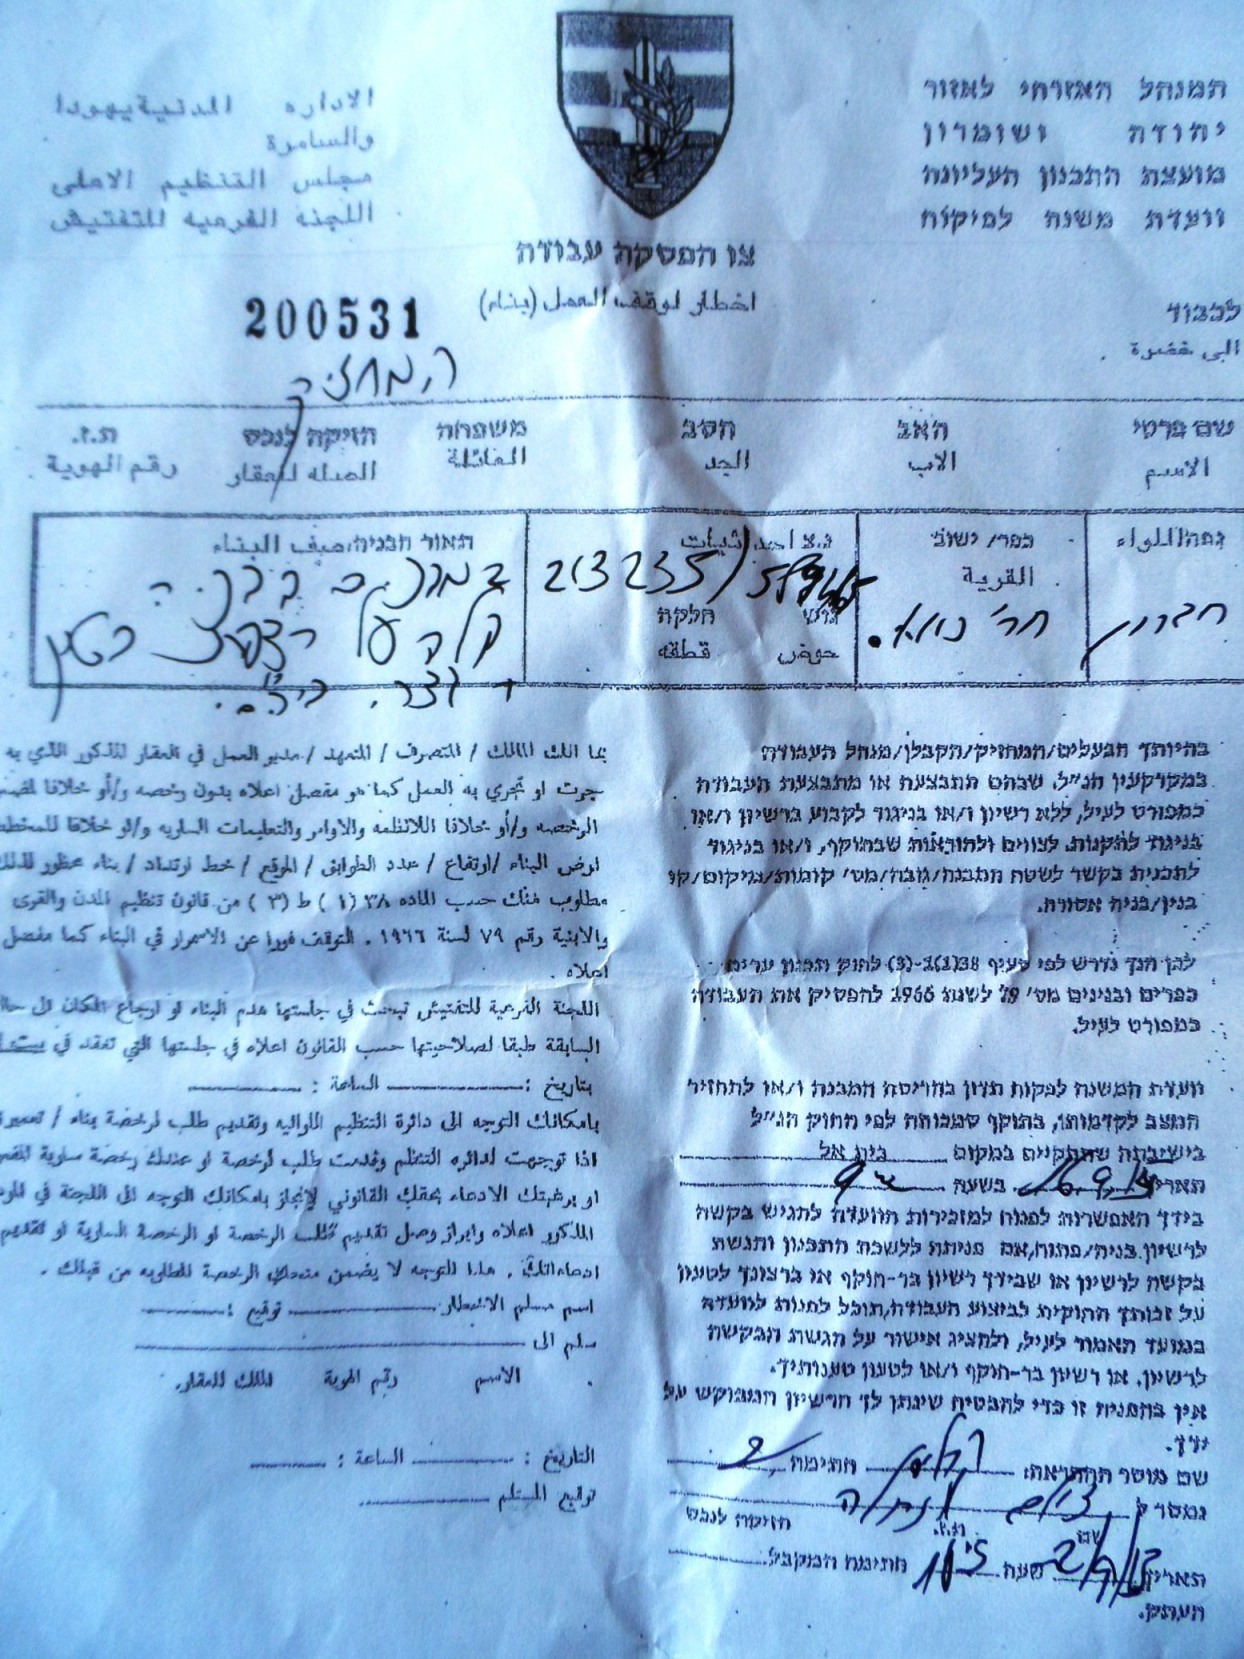 המנהל האזרחי לאזור
יהודה ושומרון
מועצת התכנון העליונה
וועדת משנה לפיקוח
الاداره المدنية يهودا
والسامرة
مجلس التنظيم الاعلى
اللجنه الفرعيه للتفتيش
צו הפסקת עבודה
اخطار لوقف العمل (بناء)
200531
לכבוד
الى حضرة
המחזיק
שם פרטי האב הסב משפחה הזיקה לנכס ת.ז.
الاسم الاب الجد العائلة الصله للعقار رقم الهوية
נפה/اللواء
חברון
כפר/ישוב
القرية
נ.צ احداثيات
213235/
גוש חלקה
حوض قطعه
תאור הבניה/صيف البناء
קלה על
בהיותך הבעלים/המחזיק/הקבלן/מנהל העבודה
במקרקעין הנ״ל, שבהם מתבצעת או מתבצעת העבודה
כמפורט לעיל, ללא רשיון ו/או בניגוד לקבוע ברשיון ו/או
בניגוד לתקנות, לצווים ולהוראות שבתוקף, ו/או בניגוד
לתכנית בקשר לשטח המבנה/גובה/מס׳ קומות/מיקום/קו
בנין/בניה אסורה.
לכן הנך נדרש לפי סעיף 38(1)ב-(3) לחוק תכנון ערים
כפרים ובנינים מס׳ 79 לשנת 1966 להפסיק את העבודה
כמפורט לעיל.
וועדת המשנה לפקוח תדון בהריסת המבנה ו/או להחזיר
המצב לקדמותו, בתוקף סמכותה לפי החוק הנ״ל
בישיבתה שתתקיים במקום בית אל
תאריך 16.9.13 בשעה 9
בידך האפשרות לפנות למזכירות הוועדה להגיש בקשה
לרשיון בניה/פתוח, אם פניתה ללשכת התכנון והגשת
בקשה לרשיון או שבידך רשיון בר-תוקף או ברצונך לטעון
על זכותך החוקית לביצוע העבודה, תוכל לפנות לוועדה
במועד האמור לעיל, ולהציג אישור על הגשת הבקשה
לרשיון, או רשיון בר-תוקף ו/או לטעון טענותיך.
אין בהפניה זו כדי להבטיח שינתן לך הרשיון המבוקש על
ידך.
שם מוסר ההתראה: חתימה
נמסר ל
שם ת.ז. הזיקה לנכס
תאריך 2/9/13 שעה חתימת המקבל
העתק.
بما انك المالك / المتصرف / المتعهد / مدير العمل في العقار المذكور الذي به
جرت او تجري به العمل كما هو مفصل اعلاه بدون رخصه و/أو خلافا
الرخصه و/أو خلافا للانظمه والاوامر والتعليمات الساريه و/او خلافا للمخطط
ارض البناء /ارتفاع / عدد الطوابق / الموقع / خط ارتداد / بناء محظور لذلك
مطلوب منك حسب الماده ٣٨ (١) ط (٣) من قانون تنظيم المدن والقرى
والابنية رقم ٧٩ لسنة ١٩٦٦ . التوقف فورا عن الاستمرار في البناء كما مفصل
اعلاه .
اللجنة الفرعية للتفتيش تبحث في جلستها هدم البناء او ارجاع المكان الى
السابقة طبقا لصلاحيتها حسب القانون اعلاه في جلستها التي تعقد في
بتاريخ : الساعة :
بامكانك التوجه الى دائرة التنظيم اللوائيه وتقديم طلب لرخصة بناء /
اذا توجهت لدائره التنظيم وقدمت طلب لرخصة او عندك رخصة سارية
او برغبتك الادعاء بحقك القانوني لإنجاز بامكانك التوجه الى اللجنة في
المذكور اعلاه وابراز وصل تقديم طلب الرخصة او الرخصة السارية او تقديم
ادعاءاتك . هذا التوجه لا يضمن منحك الرخصة المطلوبه من قبلك .
اسم مسلم الاخطار توقيع :
سلم الى
الاسم رقم الهوية المالك للعقار.
التاريخ : الساعة :
توقيع المستلم